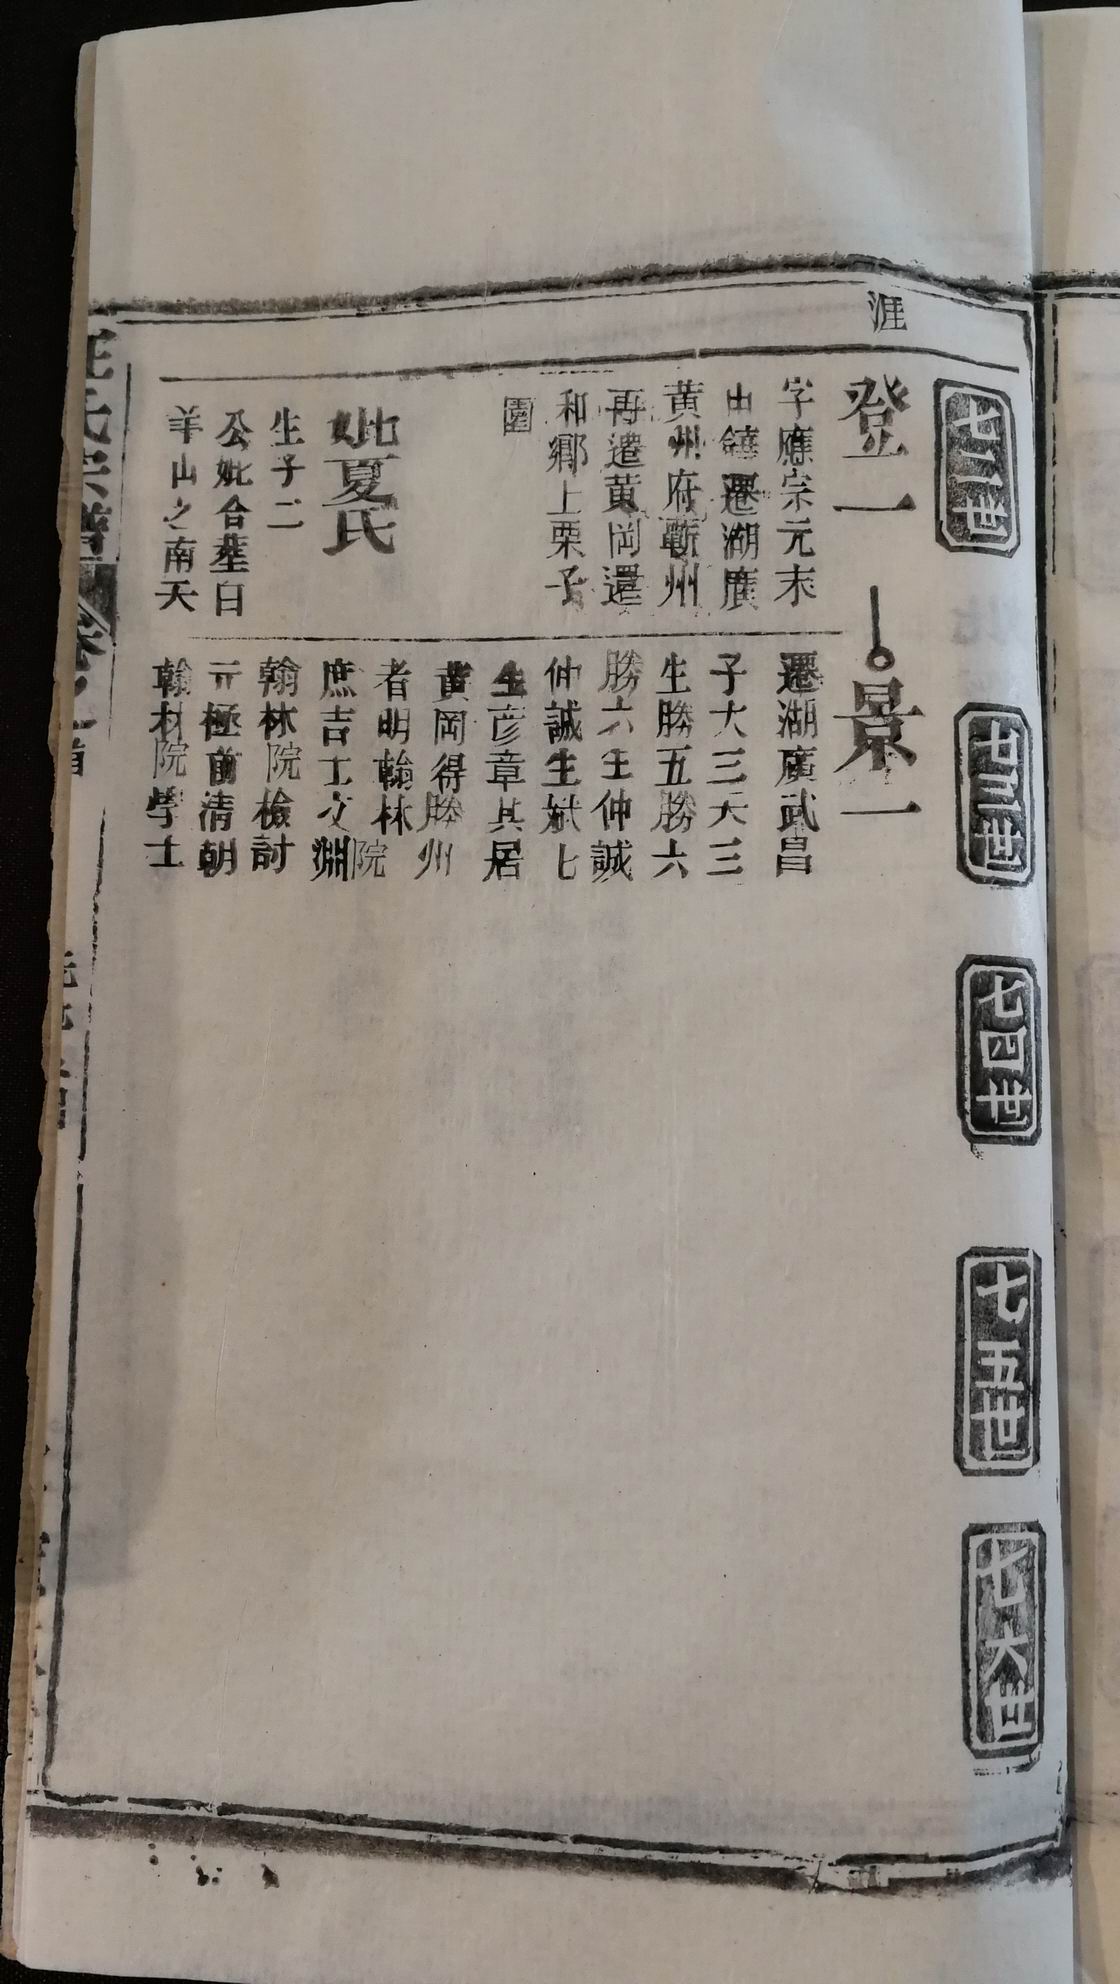 七二世
七三世
七四世
七五世
七六世
涯
登一
字應宗元末
由饒遷湖廣
黃州府蘄州
再遷黃岡還
和鄉上栗子
園
妣夏氏
生子二
公妣合塟白
羊山之南天
景一
遷湖廣武昌
子大三天三
生勝五勝六
勝六生仲誠
仲誠生斌七
生彦章其居
黃岡得勝州
者明翰林院
庶吉士文淵
翰林院檢討
元極前清朝
翰林院學士
汪氏宗譜
卷之首